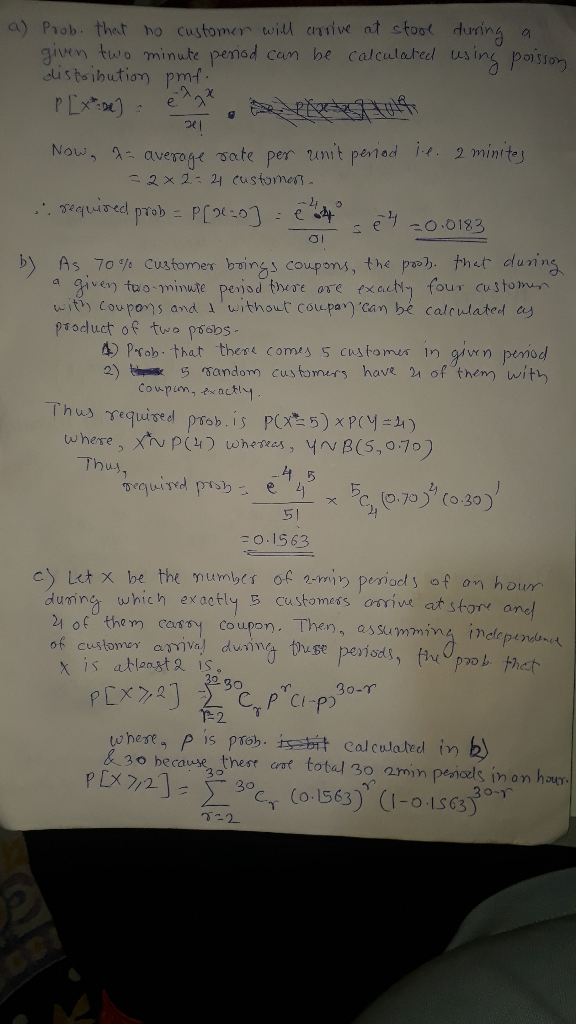 a) Prob. that no customer will arrive at stool during a
given two minute period can be calculated using poisson
distribution pmf.
P[X*=x] = e^-λ λ^x / x! .
Now, λ = average rate per unit period i.e. 2 minites
= 2 × 2 = 4 customers.
∴ required prob = P[x=0] = e^-4 · 4^0 / 0! = e^-4 = 0.0183
b) As 70% customer brings coupons, the prob. that during
a given two-minute period there are exactly four customer
with coupons and 1 without coupon can be calculated as
product of two probs-
1) Prob. that there comes 5 customer in given period
2) 5 random customers have 4 of them with
coupon, exactly.
Thus required prob. is P(X*=5) × P(Y=4)
where, X*~P(4) whereas, Y~B(5,0.70)
Thus,
required prob = e^-4 4^5 / 5! × ⁵C₄ (0.70)^4 (0.30)^1
= 0.1563
c) Let X be the number of 2-min periods of an hour
during which exactly 5 customers arrive at store and
4 of them carry coupon. Then, assumming independence
of customer arrival during these periods, the prob that
X is atleast 2 is.
P[X≥2] = Σ_{r=2}^{30} ³⁰C_r p^r (1-p)^{30-r}
where, p is prob. calculated in b)
& 30 because there are total 30 2min periods in an hour.
P[X≥2] = Σ_{r=2}^{30} ³⁰C_r (0.1563)^r (1-0.1563)^{30-r}